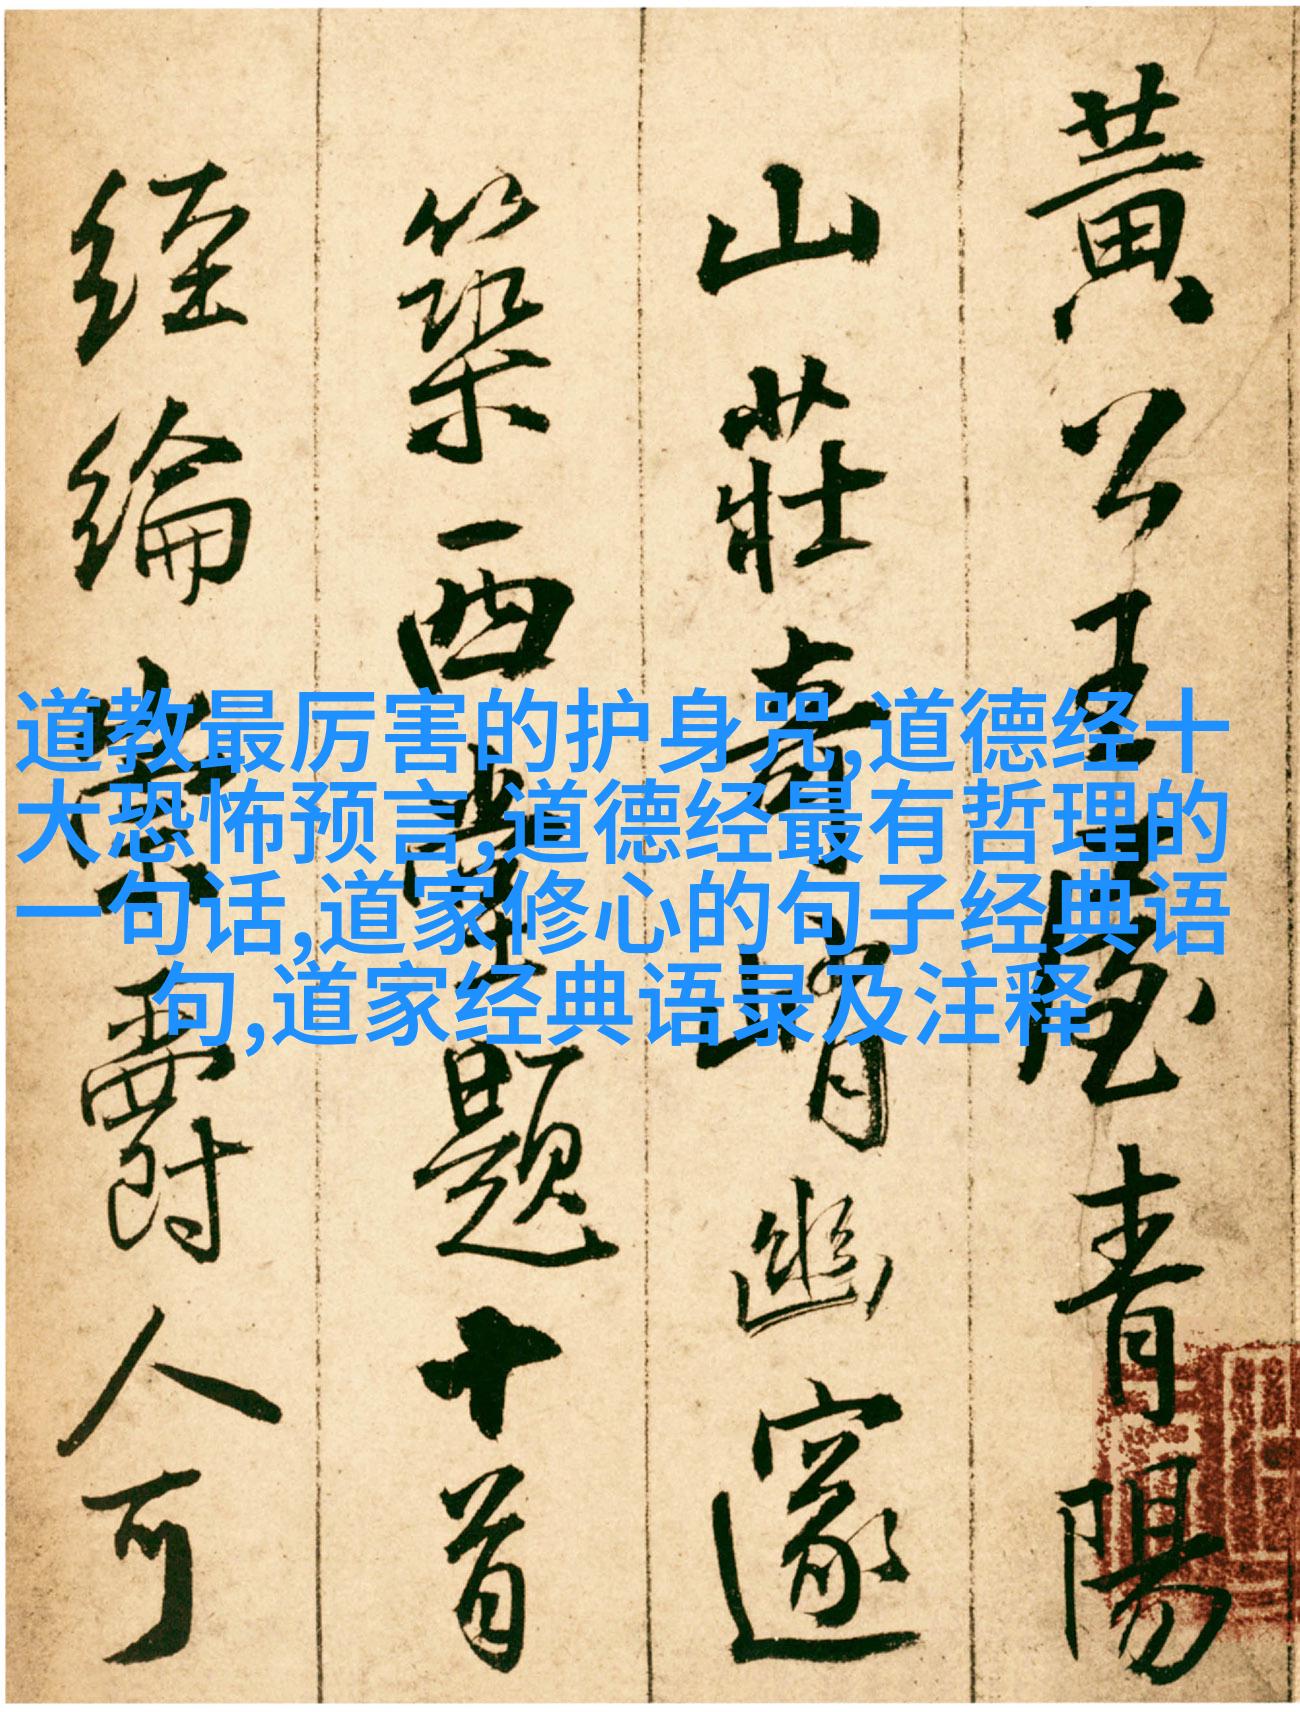 黃公王屋青陽
山莊奇峭幽邃
築西堂題十首
經綸紫爵人可
道教最厉害的护身咒,道德经十
大恐怖预言,道德经最有哲理的
一句话,道家修心的句子经典语
句,道家经典语录及注释